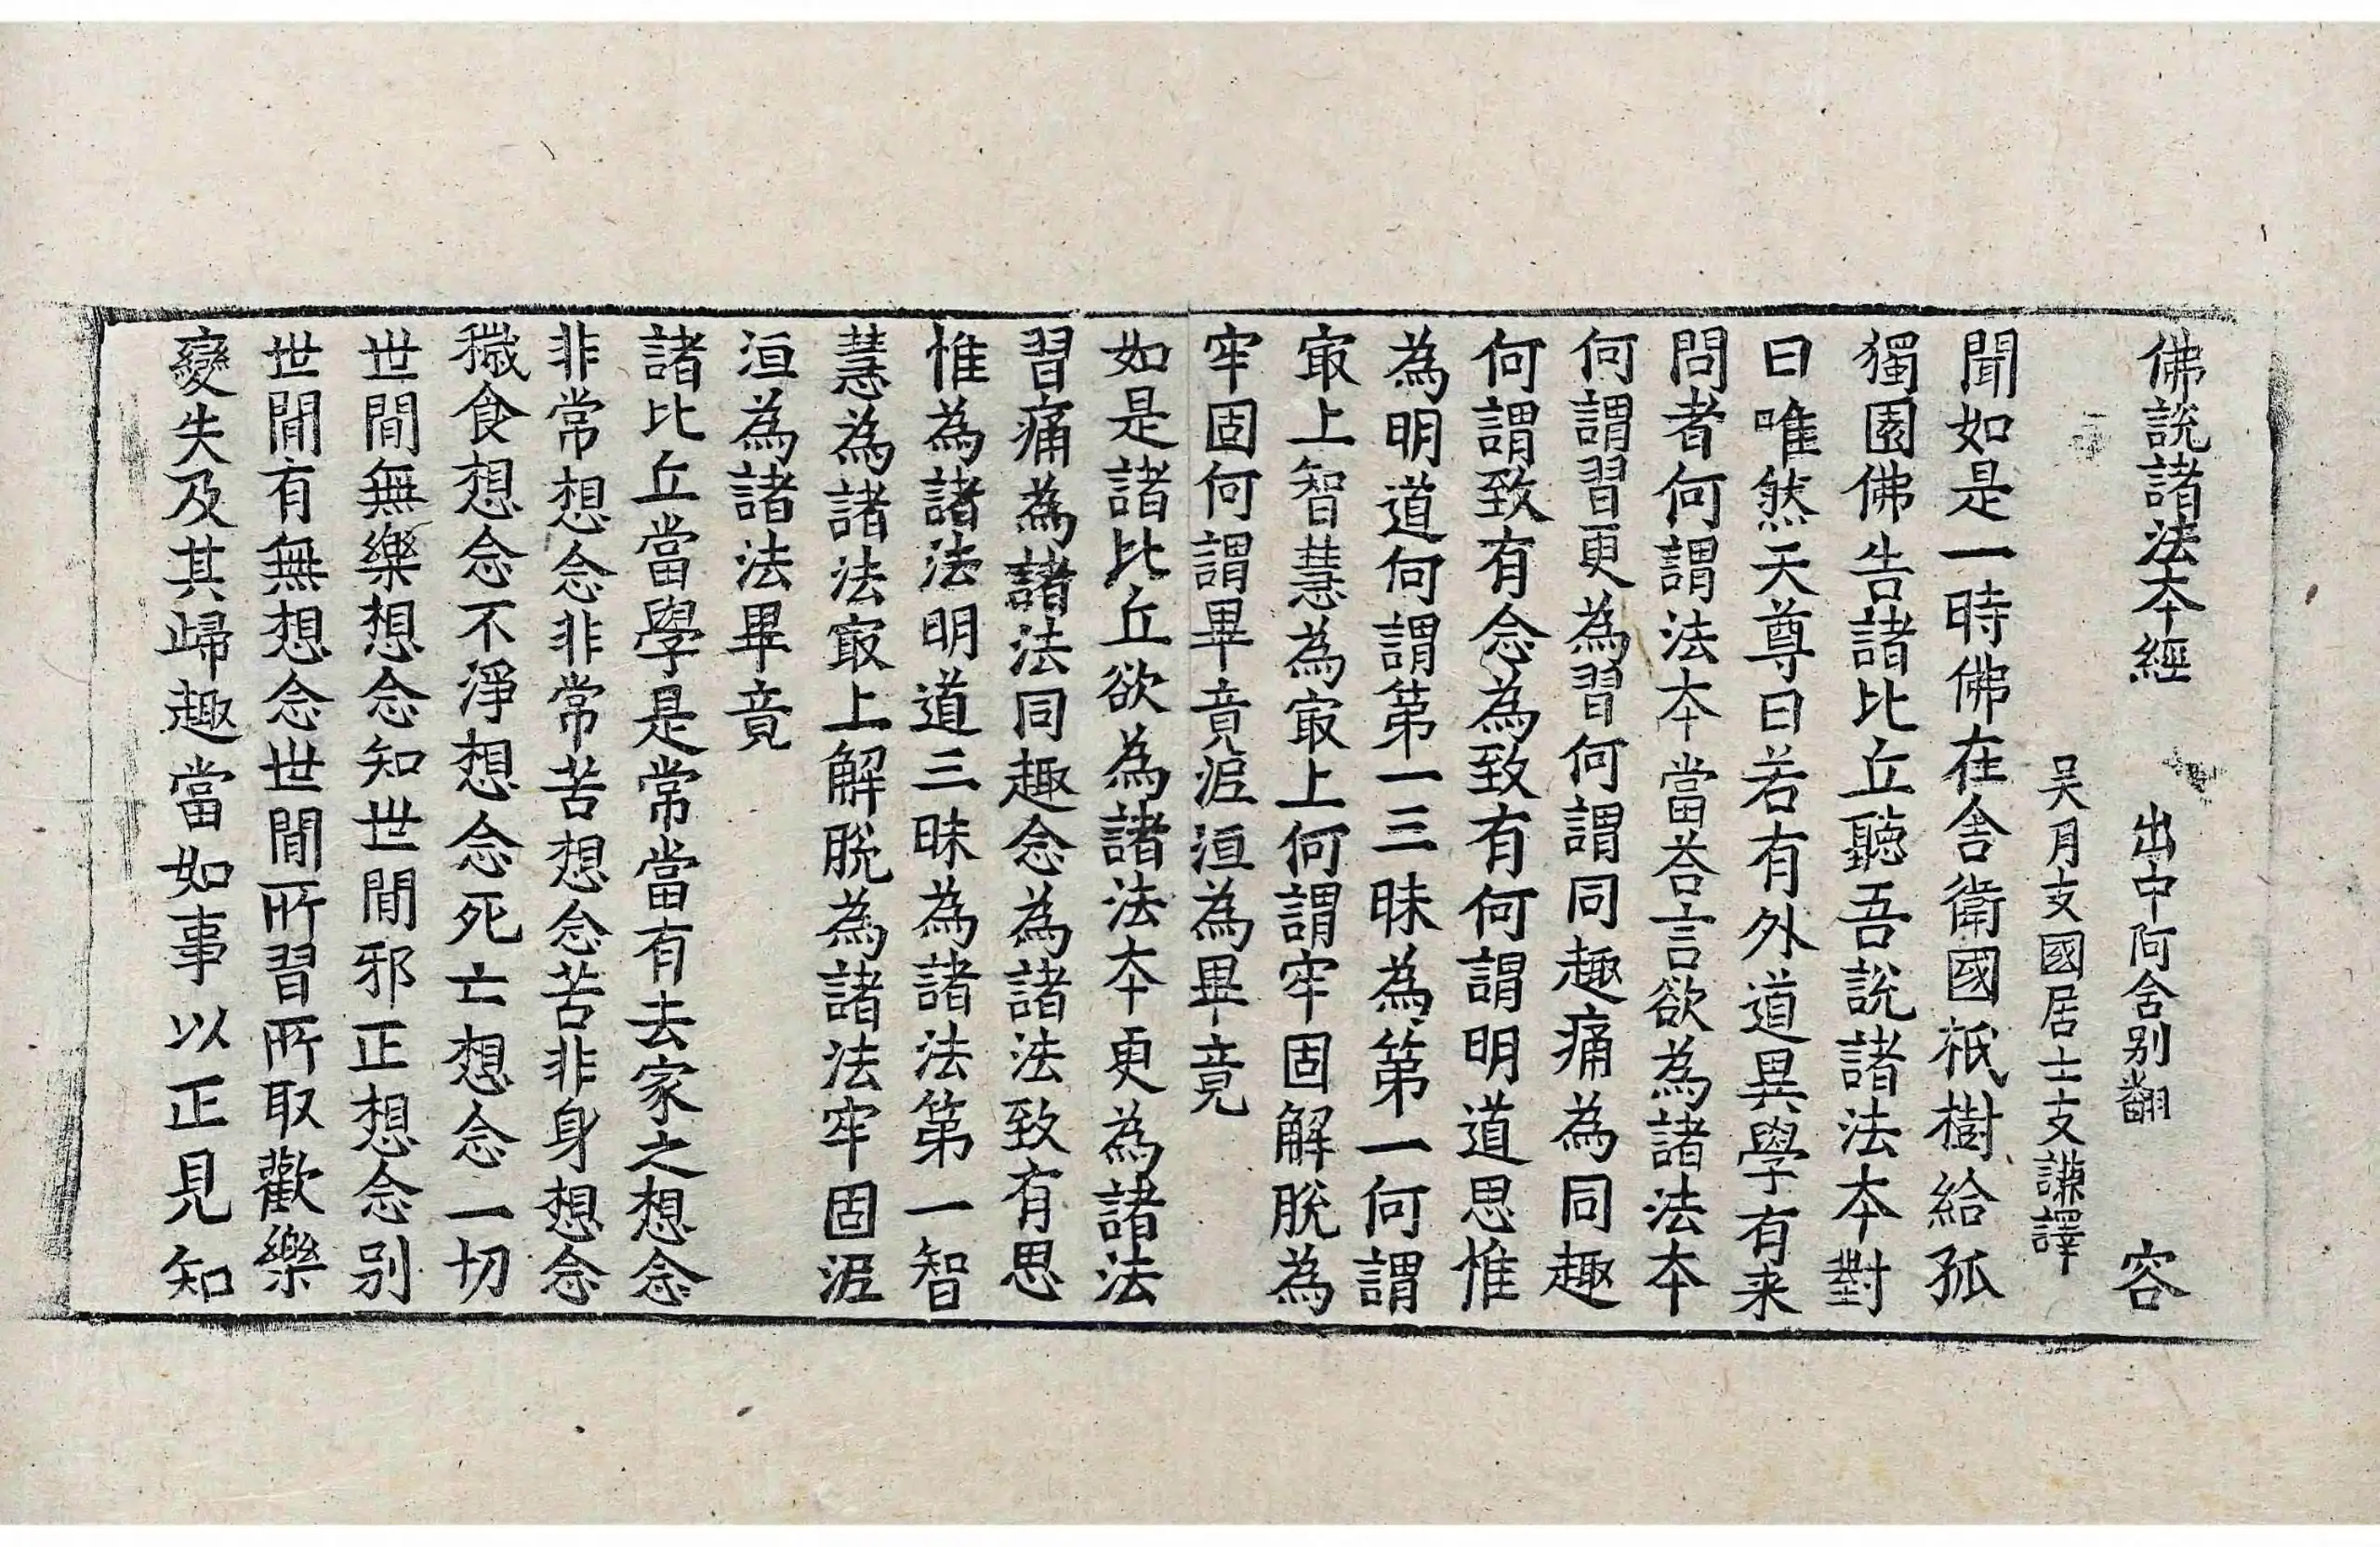 佛說諸法本經 出中阿含别翻 容
吴月支國居士支謙譯
聞如是一時佛在舎衛國祇樹給孤
獨園佛告諸比丘聽吾說諸法本對
曰唯然天尊曰若有外道異學有来
問者何謂法本當荅言欲為諸法本
何謂習更為習何謂同趣痛為同趣
何謂致有念為致有何謂明道思惟
為明道何謂第一三昧為第一何謂
㝡上智慧為㝡上何謂牢固解脫為
牢固何謂畢竟泥洹為畢竟
如是諸比丘欲為諸法本更為諸法
習痛為諸法同趣念為諸法致有思
惟為諸法明道三昧為諸法第一智
慧為諸法㝡上解脫為諸法牢固泥
洹為諸法畢竟
諸比丘當學是常當有去家之想念
非常想念非常苦想念苦非身想念
穢食想念不淨想念死亡想念一切
世間無樂想念知世間邪正想念别
世間有無想念世間所習所取歡樂
變失及其歸趣當如事以正見知